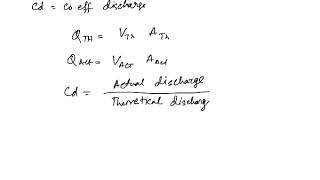 Cd = co eff discharge
Q_TH = V_Th A_Th
Q_Act = V_ACT A_Act
Cd = Actual discharge / Theoretical discharg